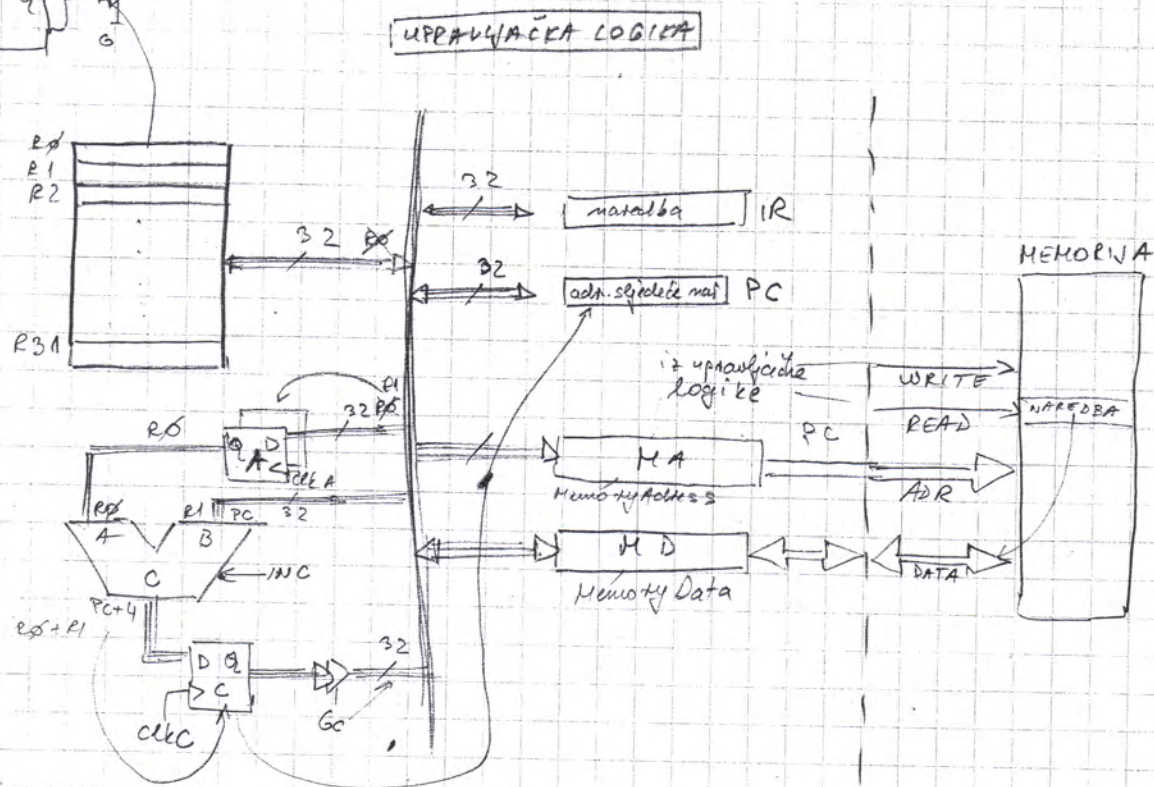 UPRAVLJAČKA LOGIKA
G
RØ
R1
R2
R31
32
RØ
32
naredba
IR
32
adr. sljedeće nar
PC
MEMORIJA
iz upravljačke
logike
WRITE
READ
NAREDBA
R1
32
RØ
RØ
Q
D
A
Clk A
32
MA
Memory Adress
PC
ADR
RØ
R1
PC
A
B
C
INC
MD
Memory Data
DATA
PC+4
RØ+R1
D
Q
C
ClkC
Gc
32